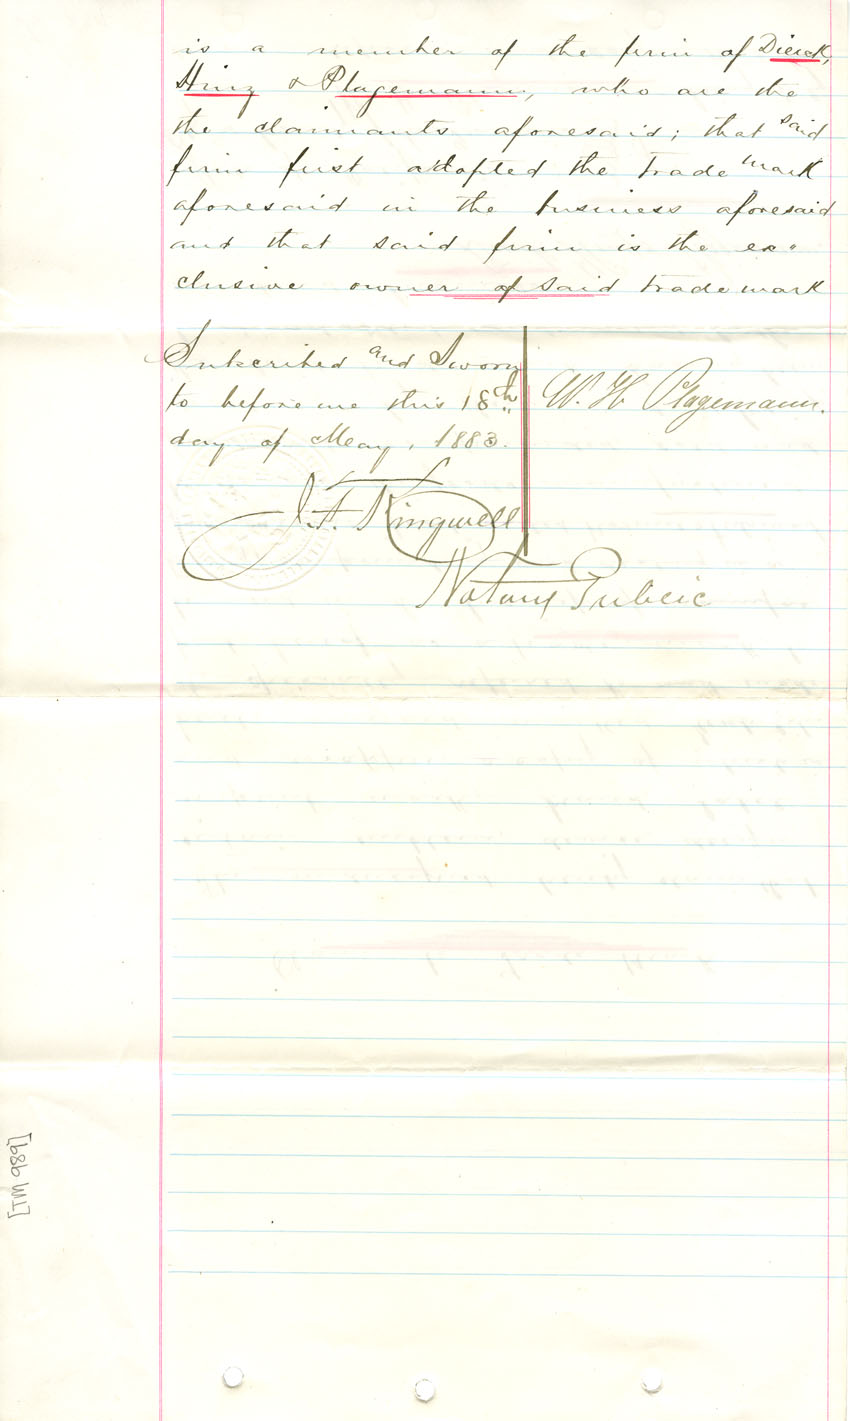 is a member of the firm of Dierck,
Hinz & Plagemann, who are the
the claimants aforesaid; that said
firm first adopted the trade mark
aforesaid in the business aforesaid
and that said firm is the ex"
clusive owner of said trade mark
Subscribed and Sworn
to before me this 18th
day of May, 1883.
W. H. Plagemann.
J. F. Kingwell
Notary Public
[TM 989]